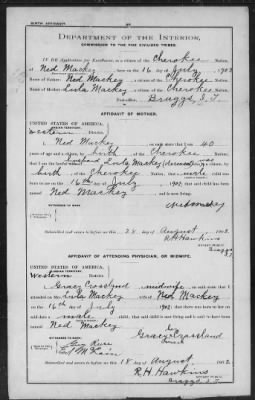 BIRTH AFFIDAVIT.
DEPARTMENT OF THE INTERIOR,
COMMISSION TO THE FIVE CIVILIZED TRIBES.
IN RE Application for Enrollment, as a citizen of the Cherokee Nation,
of Ned Mackey born on the 16 day of July, 1902
Name of Father: Ned Mackey a citizen of the Cherokee Nation.
Name of Mother: Lula Mackey a citizen of the Cherokee Nation.
Postoffice, Braggs, I.T.
AFFIDAVIT OF MOTHER.
UNITED STATES OF AMERICA,
INDIAN TERRITORY,
Western District.
I, Ned Mackey on oath state that I am 40
years of age and a citizen, by birth of the Cherokee Nation,
that I am the lawful husband Lula Mackey (deceased) was citizen, by
birth of the Cherokee Nation; that a male child
was born to me on the 16th day of July 1902; that said child has been
named Ned Mackey and is now living.
Ned Mackey
WITNESSES TO MARK:
Subscribed and sworn to before me this 28 day of August, 1902.
R H Hawkins
Braggs
I.T.
AFFIDAVIT OF ATTENDING PHYSICIAN, OR MIDWIFE.
UNITED STATES OF AMERICA,
INDIAN TERRITORY,
Western District.
I, Gracy Crossland, midwife, on oath state that I
attended on Lula Mackey, wife of Ned Mackey
on the 16th day of July, 1902; that there was born to her on
said date a male child; that said child is now living and is said to have been
named Ned Mackey
Gracy Crossland
WITNESSES TO MARK:
Subscribed and sworn to before me this 18 day of August, 1902.
R.H. Hawkins
Braggs I.T.